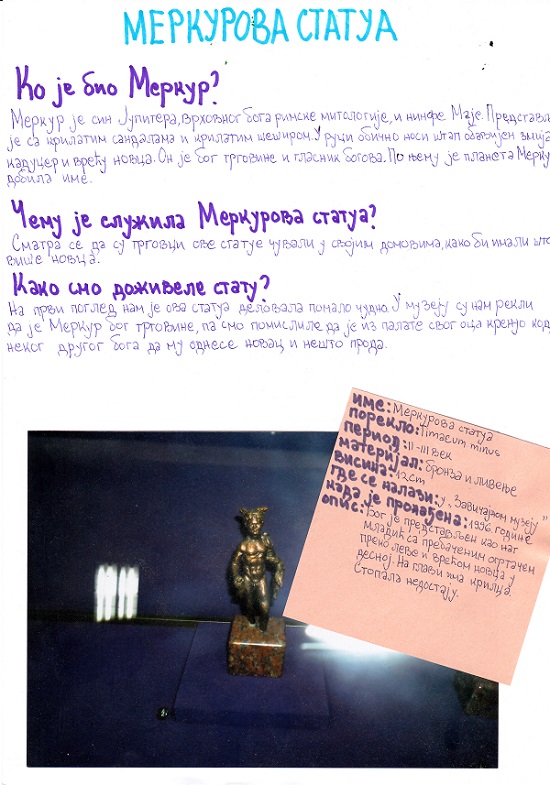 МЕРКУРОВА СТАТУА
Ко је био Меркур?
Меркур је син Јупитера, врховног бога римске митологије, и нимфе Маје. Представљ
је са крилатим сандалама и крилатим шеширом. У руци обично носи штап обавијен змија
кадуцер и врећу новца. Он је бог трговине и гласник богова. По њему је планета Мерку
добила име.
Чему је служила Меркурова статуа?
Сматра се да су трговци ове статуе чували у својим домовима, како би имали што
више новца.
Како смо доживеле стату?
На први поглед нам је ова статуа деловала помало чудно. У музеју су нам рекли
да је Меркур бог трговине, па смо помислиле да је из палате свог оца кренуо код
неког другог бога да му однесе новац и нешто прода.
име: Меркурова статуа
порекло: Timacum minus
период: II-III век
материјал: бронза и ливење
висина: 12cm
где се налази: у „Завичајном музеју"
када је пронађена: 1996. године
опис: Бог је представљен као наг
младић са пребаченим огртачем
преко леве и врећом новца у
десној. На глави има крилца.
Стопала недостају.